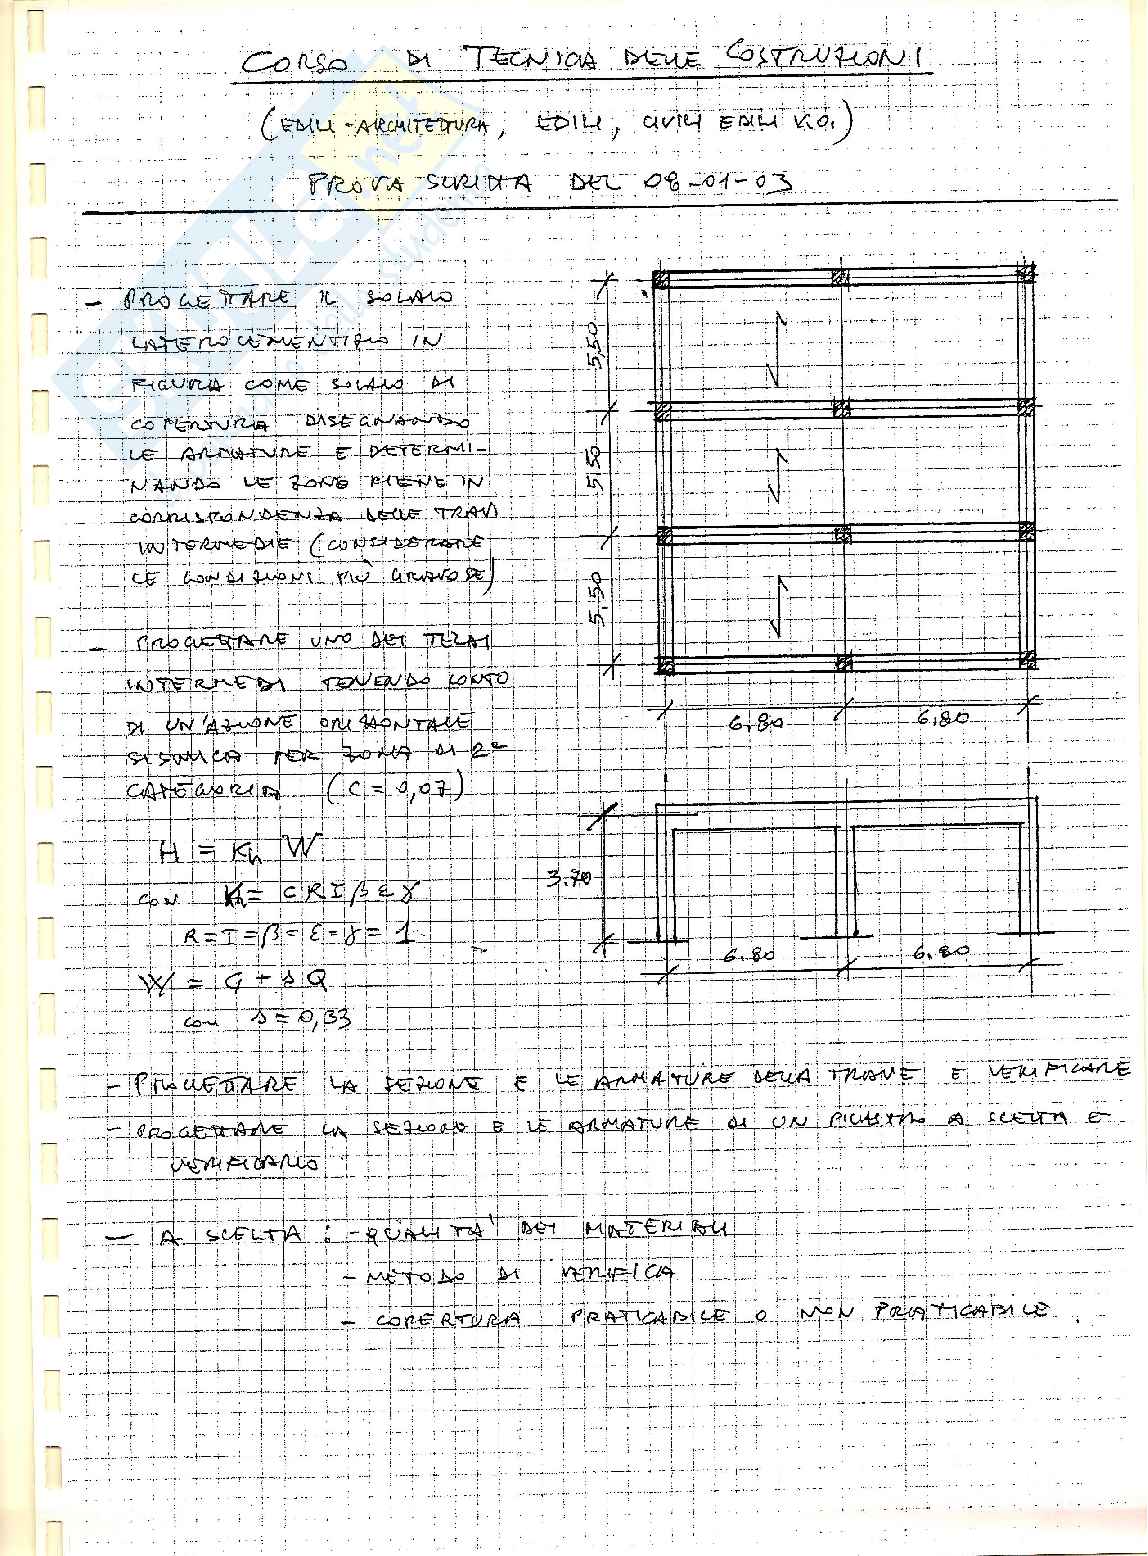 CORSO DI TECNICA DELLE COSTRUZIONI
(EDILI-ARCHITETTURA, EDILI, CIVILI EDILI V.O.)
PROVA SCRITTA DEL 08-01-03
- PROGETTARE IL SOLAIO
LATEROCEMENTIZIO IN
FIGURA COME SOLAIO DI
COPERTURA DISEGNANDO
LE ARMATURE E DETERMI-
NANDO LE ZONE PIENE IN
CORRISPONDENZA DELLE TRAVI
INTERMEDIE (CONSIDERARE
LE CONDIZIONI PIÙ GRAVOSE)
- PROGETTARE UNO DEI TELAI
INTERMEDI TENENDO CONTO
DI UN'AZIONE ORIZZONTALE
SISMICA PER ZONA DI 2ª
CATEGORIA (C = 0,07)
H = Kh W
CON Kh = C R I β ε γ
R = I = β = ε = γ = 1
W = G + s Q
con s = 0,33
5,50
5,50
5,50
6.80
6,80
3.70
6.80
6.80
- PROGETTARE LA SEZIONE E LE ARMATURE DELLA TRAVE E VERIFICARE
- PROGETTARE LA SEZIONE E LE ARMATURE DI UN PILASTRO A SCELTA E
VERIFICARLO
- A SCELTA : - QUALITA' DEI MATERIALI
- METODO DI VERIFICA
- COPERTURA PRATICABILE O NON PRATICABILE.